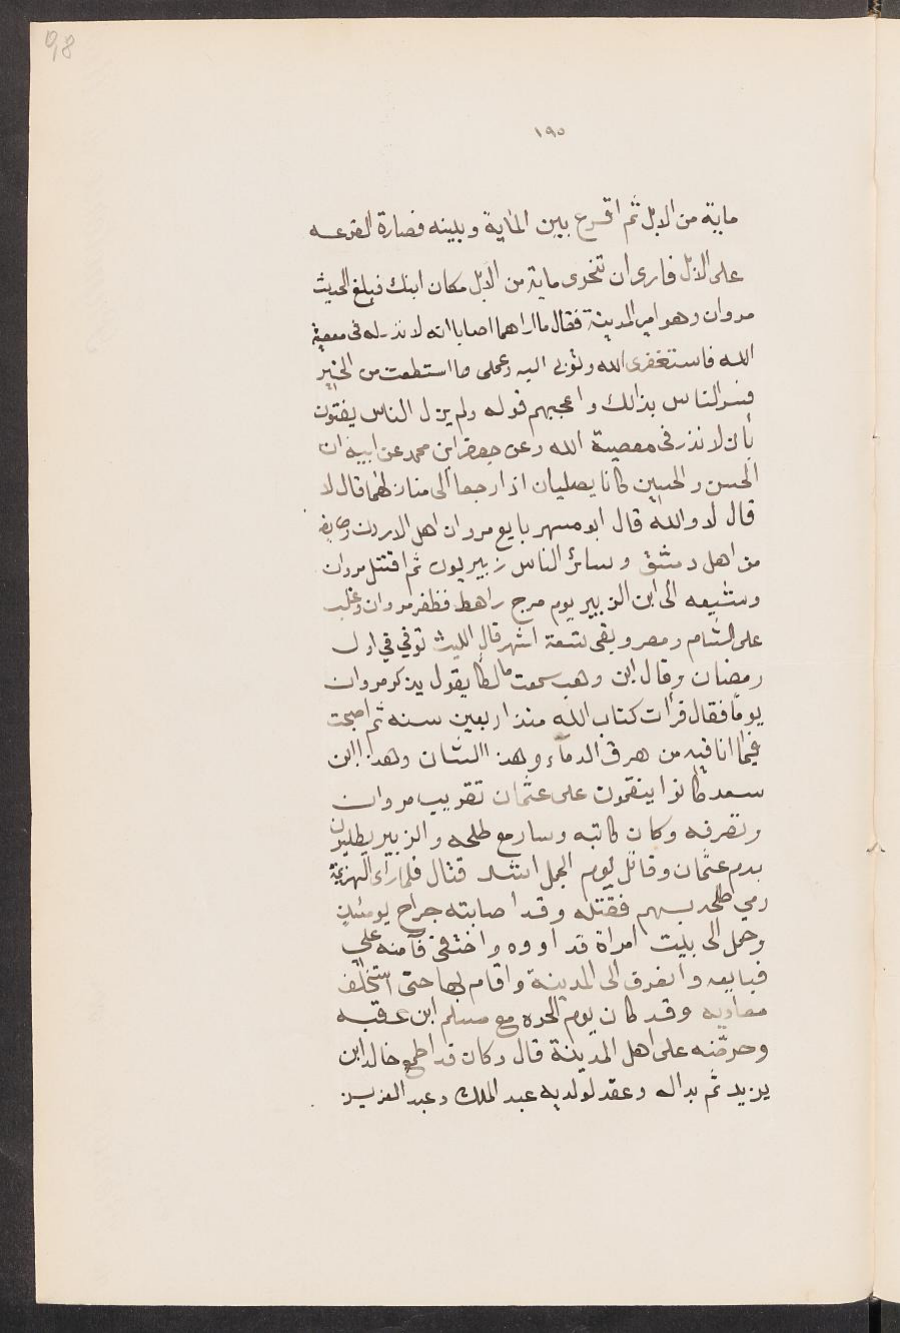 98
١٩٥
ماية من الابل ثم اقرع بين الماية وبينه فصارة القرعه
على الابل فارى ان تنحرى ماية من الابل مكان ابنك فبلغ الحديث
مروان وهو امير المدينة فقال ما اراهما اصابا انه لا نذر له فى معصية
الله فاستغفرى الله وتوبى اليه وعملى ما استطعت من الخير
فسر الناس بذالك واعجبهم قوله ولم يزل الناس يفتون
بأن لا نذر فى معصية الله وعن جعفر ابن محمد عن ابيه ان
الحسن والحسين كانا يصليان اذا رجعا الى منازلهما قال لا
قال لا والله قال ابو مسهر بايع مروان اهل الاردن وطايفه
من اهل دمشق وسائر الناس زبيريون ثم اقتتل مروان
وشيعه الى ابن الزبير يوم مرج راهط فظفر مروان وغلب
على الشام ومصر وبقى تسعة اشهر قال الليث توفي في اول
رمضان وقال ابن وهب سمعت مالكا يقول يذكر مروان
يومًا فقال قرأت كتاب الله منذ اربعين سنه ثم اصبحت
فيما انا فيه من هرق الدمآء وهذا الشان وهذا ابن
سعد كانوا ينقمون على عثمان تقريب مروان
وتصرفه وكان كاتبه وسار مع طلحه والزبير يطلبون
بدم عثمان وقاتل يوم الجمل اشد قتال فلما رأى الهزيمة
رمي طلحه بسهم فقتله وقد اصابته جراح يومئذٍ
وحمل الى بيت امراة قد اووه واختفى فآمنه علي
فبايعه وانصرف الى المدينة واقام بها حتى استخلف
معاويه وقد كان يوم الحره مع مسلم ابن عقبه
وحرضه على اهل المدينة قال وكان قد اطمع خالد ابن
يزيد ثم بداله وعقد لولديه عبد الملك وعبد العزيز